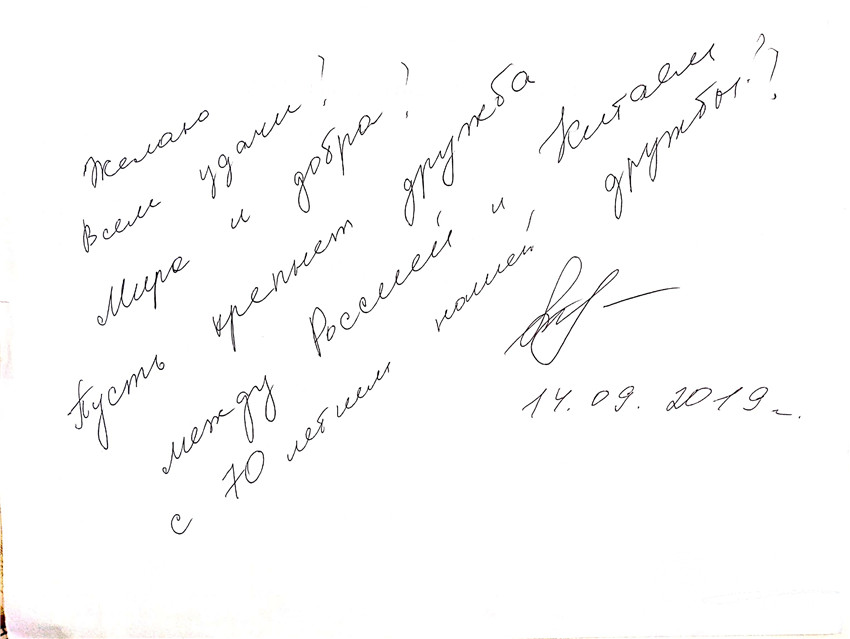 Желаю
всем удачи!
Мира и добра!
Пусть крепнет дружба
между Россией и Китаем
с 70 летием нашей дружбы!
14.09.2019 г.